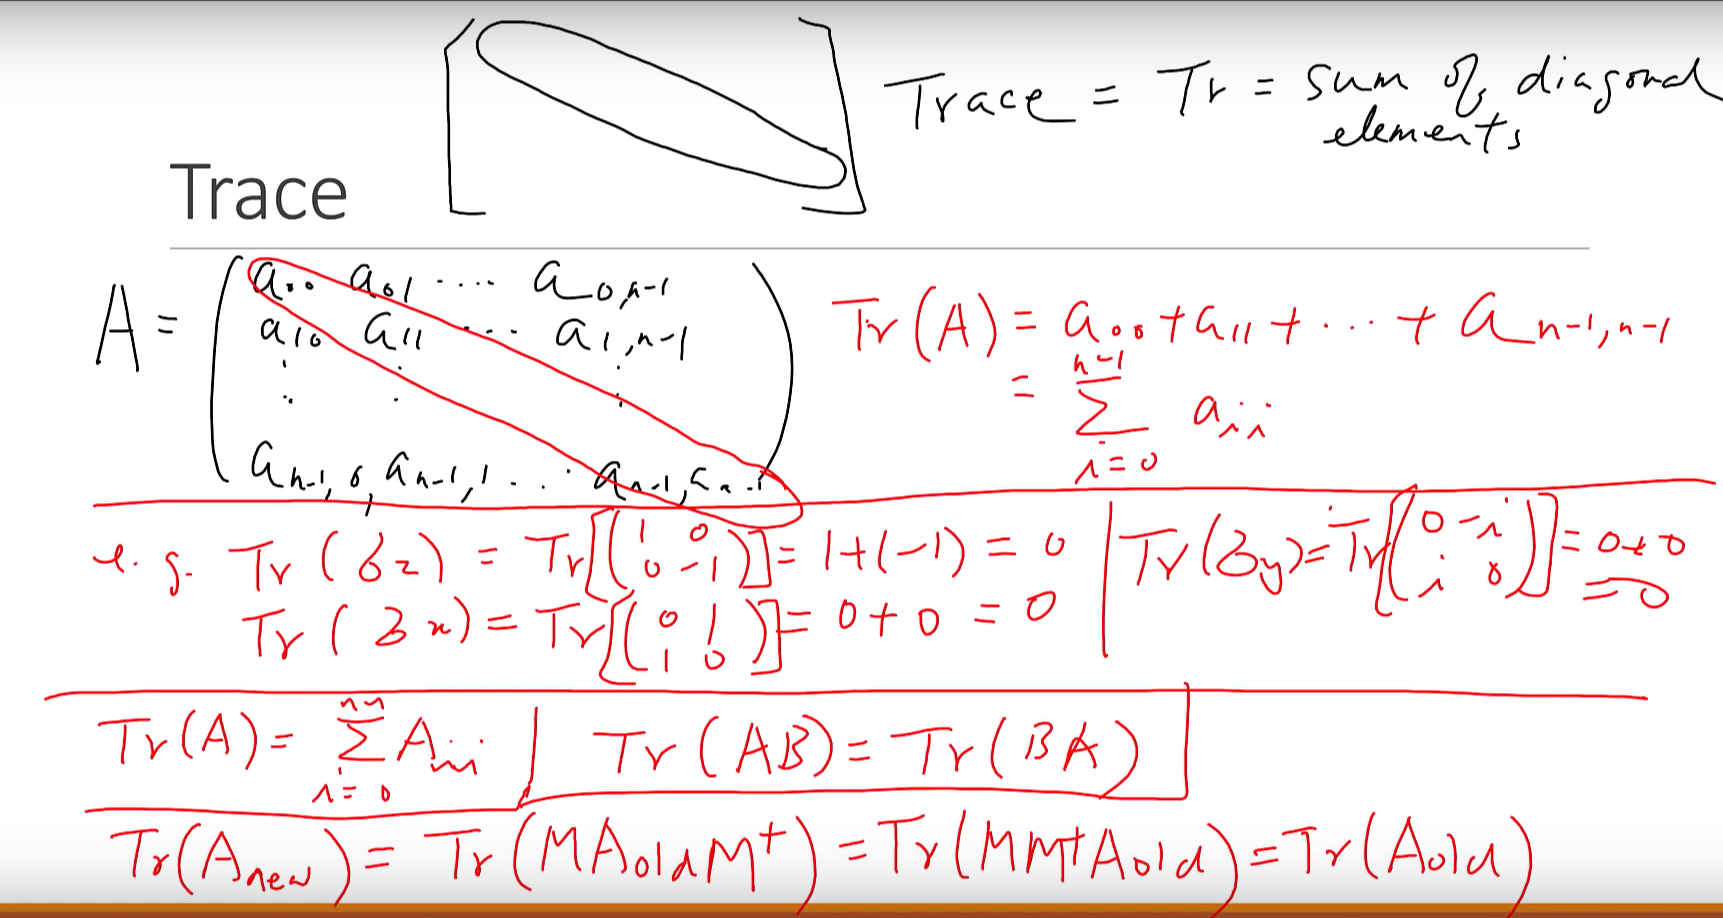 Trace = Tr = sum of diagonal
elements
Trace
A = ( a₀₀ a₀₁ .... a₀,n-1
a₁₀ a₁₁ ... a₁,n-1
aₙ₋₁,₀, aₙ₋₁,₁ ... aₙ₋₁,ₐₙ₋₁ )
Tr(A) = a₀₀ + a₁₁ + ... + aₙ₋₁,ₙ₋₁
= Σ_{i=0}^{n-1} aᵢᵢ
e.g. Tr(σz) = Tr[(1 0; 0 -1)] = 1+(-1) = 0 | Tr(σy) = Tr[(0 -i; i 0)] = 0+0 = 0
Tr(σx) = Tr[(0 1; 1 0)] = 0+0 = 0
Tr(A) = Σ_{i=0}^{n-1} Aᵢᵢ | Tr(AB) = Tr(BA)
Tr(A_new) = Tr(MA_old M†) = Tr(MM†A_old) = Tr(A_old)